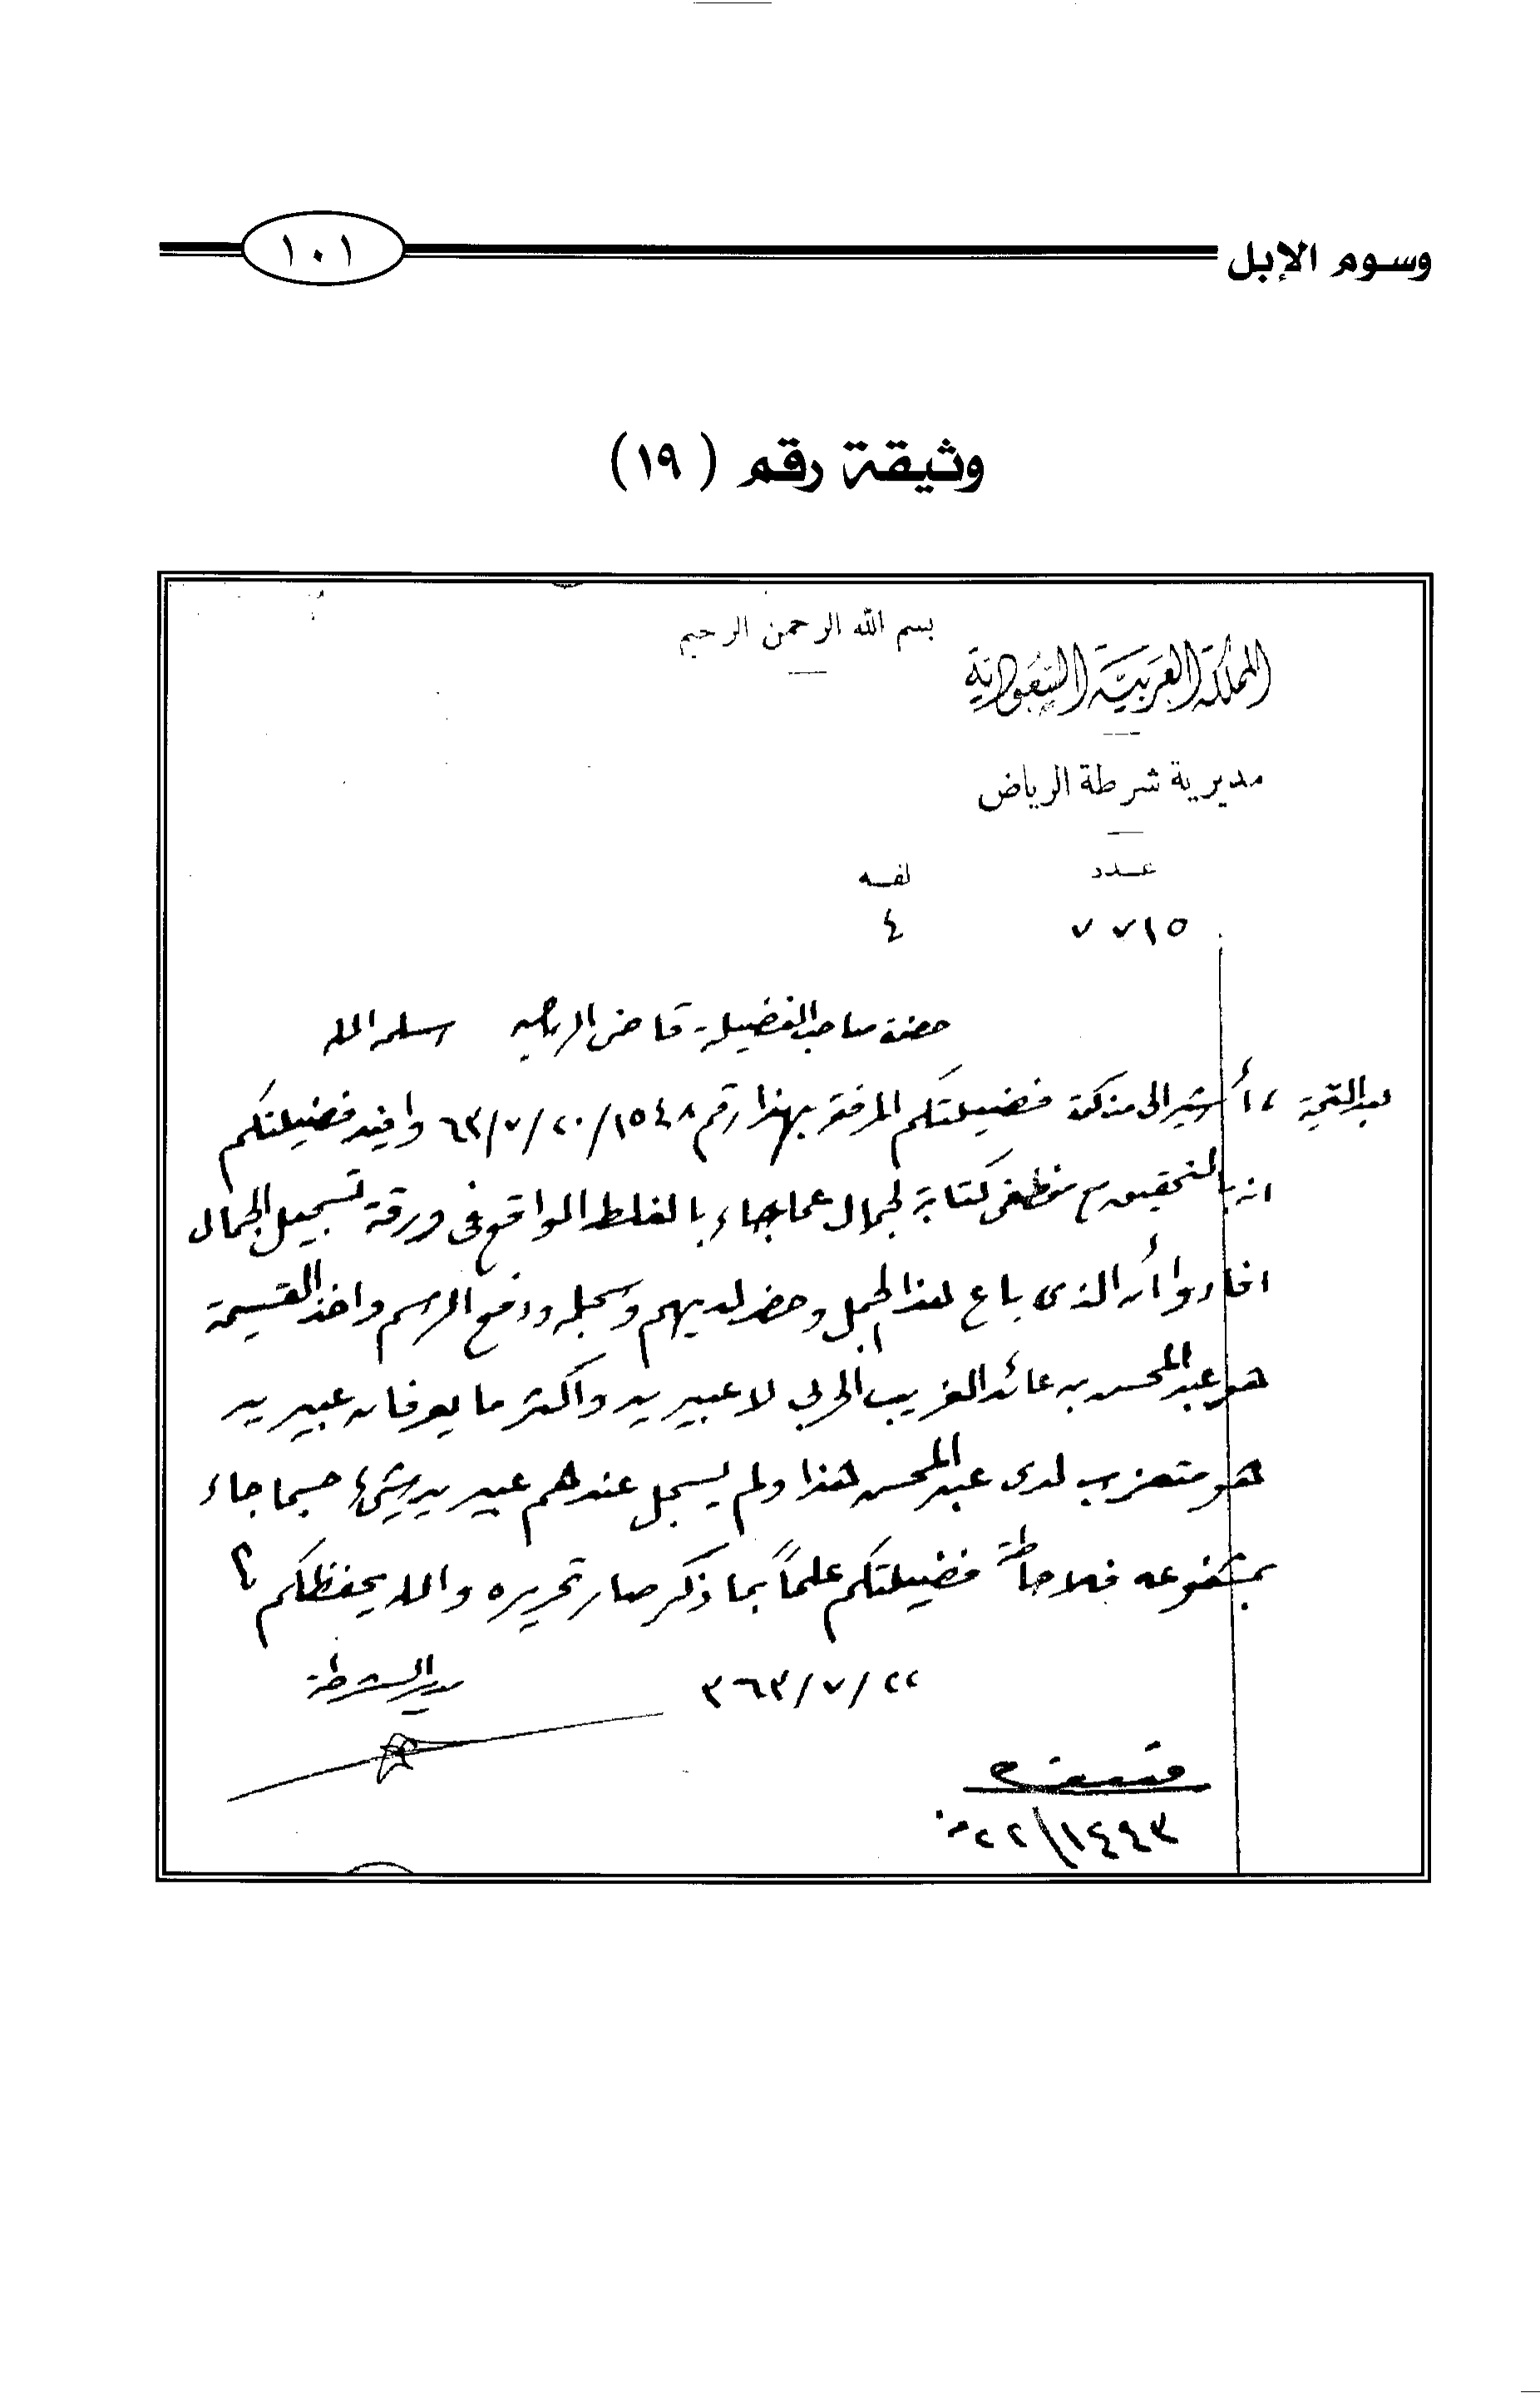 وسوم الإبل
١٠١
وثيقة رقم (١٩)
بسم الله الرحمن الرحيم
المملكة العربية السعودية
مديرية شرطة الرياض
عدد
لفـه
٧٧١٥
٤
حضرة صاحب الفضيلة قاضي الرياض سلمه الله
بعد التحية ،، أشير الى مذكرة فضيلتكم المرفقه بهذا رقم ١٥٤٨/٢٠/٧/٦٣ وافيد فضيلتكم
انه بالتحقيق مع موظفي كتابة الجمال عما جاء بالغلط الواقع في ورقة تسجيل الجمال
افادوا أن الذي باع هذا الجمل وحضر لديهم وسجله ودفع الرسم واخذ القسيمة
هو عبد المحسن بن عائد الغريب الحربي لا عبيريد واكثر ما يعرفان عبيريد
هو متعزب لدى عبد المحسن هذا ولم يسجل عندهم عبيريد شيء حسبما جاء
بمشفوعه فلاحاطة فضيلتكم علماً بما ذكر صار تحريره والله يحفظكم
٢٢/٧/٣٦٣
مدير الشرطة
١٤٤٣/٢٢